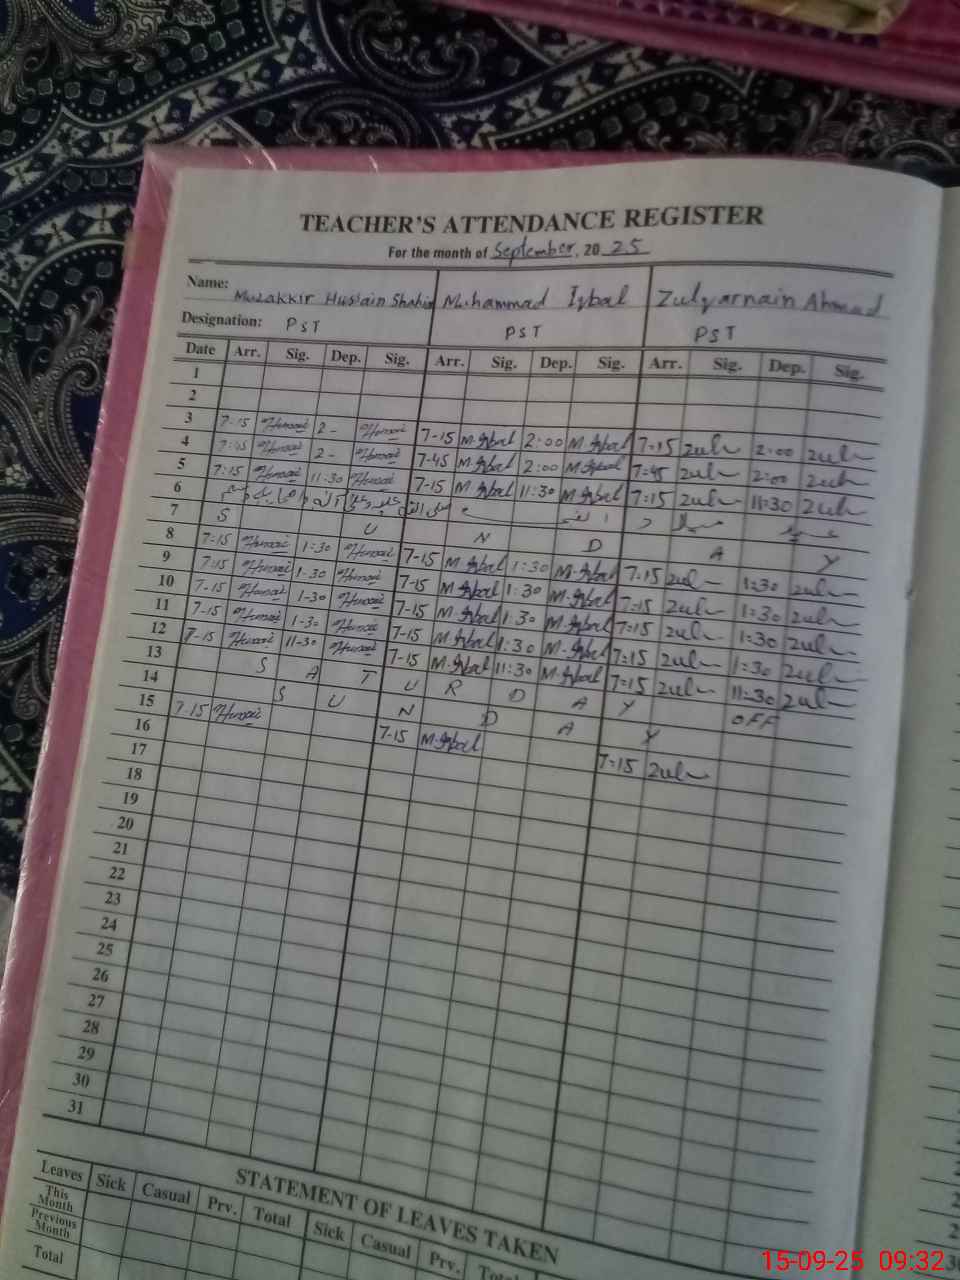 TEACHER'S ATTENDANCE REGISTER
For the month of September, 20 25
Name: Muzakkir Hussain Shahin Muhammad Iqbal Zulqarnain Ahmad
Designation: PST PST PST
Date Arr. Sig. Dep. Sig. Arr. Sig. Dep. Sig. Arr. Sig. Dep. Sig.
1
2
3 7-15 2- 7-15 M.Iqbal 2:00 M.Iqbal 7:15 zulr 2:00 zulr
4 7-45 2- 7-45 M.Iqbal 2:00 M.Iqbal 7:45 zulr 2:00 zulr
5 7:15 11-30 7-15 M.Iqbal 11:30 M.Iqbal 7:15 zulr 11:30 zulr
6 میلاد
7 S U N D A Y
8 7:15 1:30 7-15 M.Iqbal 1:30 M.Iqbal 7:15 zulr 1:30 zulr
9 7:15 1-30 7-15 M.Iqbal 1:30 M.Iqbal 7:15 zulr 1:30 zulr
10 7-15 1-30 7-15 M.Iqbal 1:30 M.Iqbal 7:15 zulr 1:30 zulr
11 7-15 1-30 7-15 M.Iqbal 1:30 M.Iqbal 7:15 zulr 1:30 zulr
12 7-15 11-30 7-15 M.Iqbal 11:30 M.Iqbal 7:15 zulr 11:30 zulr
13 S A T U R D A Y OFF
14 S U N D A Y
15 7-15 7-15 M.Iqbal 7:15 zulr
16
17
18
19
20
21
22
23
24
25
26
27
28
29
30
31
STATEMENT OF LEAVES TAKEN
Leaves Sick Casual Prv. Total Sick Casual Prv. Total
This Month
Previous Month
Total
15-09-25 09:32